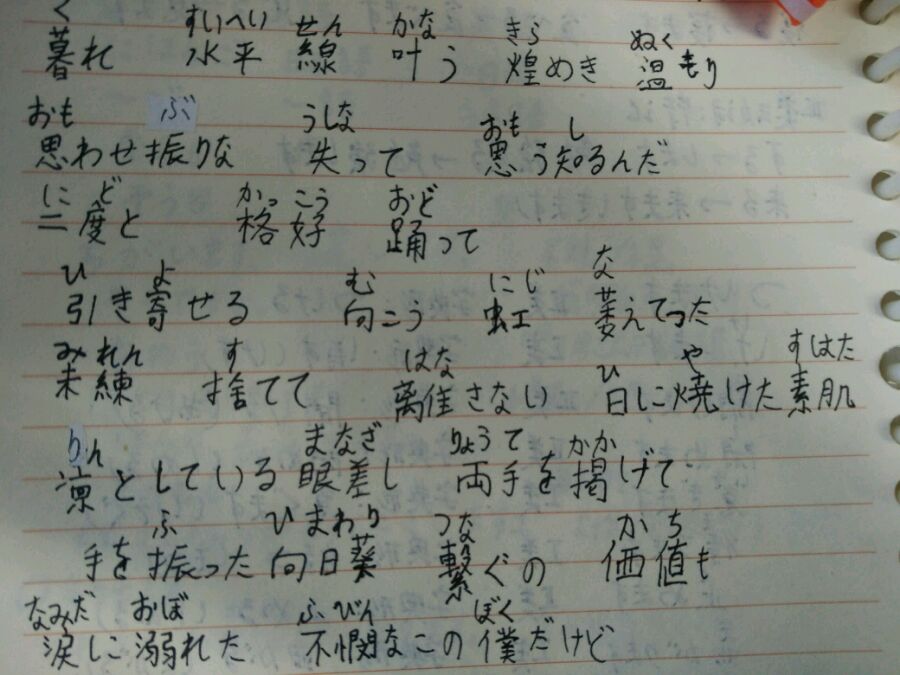 く すいへい せん かな きら ぬく
暮れ 水平線 叶う 煌めき 温もり
おも ぶ うしな おも し
思わせ振りな 失って 思う知るんだ
にど かっこう おど
二度と 格好 踊って
ひ よ む にじ な
引き寄せる 向こう 虹 萎えてった
みれん す はな ひ や すはた
未練 捨てて 離さない 日に焼けた素肌
りん まなざ りょうて かか
凛としている眼差し 両手を掲げて
ふ ひまわり つな かち
手を振った向日葵 繋ぐの 価値も
なみだ おぼ ふびん ぼく
涙に溺れた 不憫なこの僕だけど